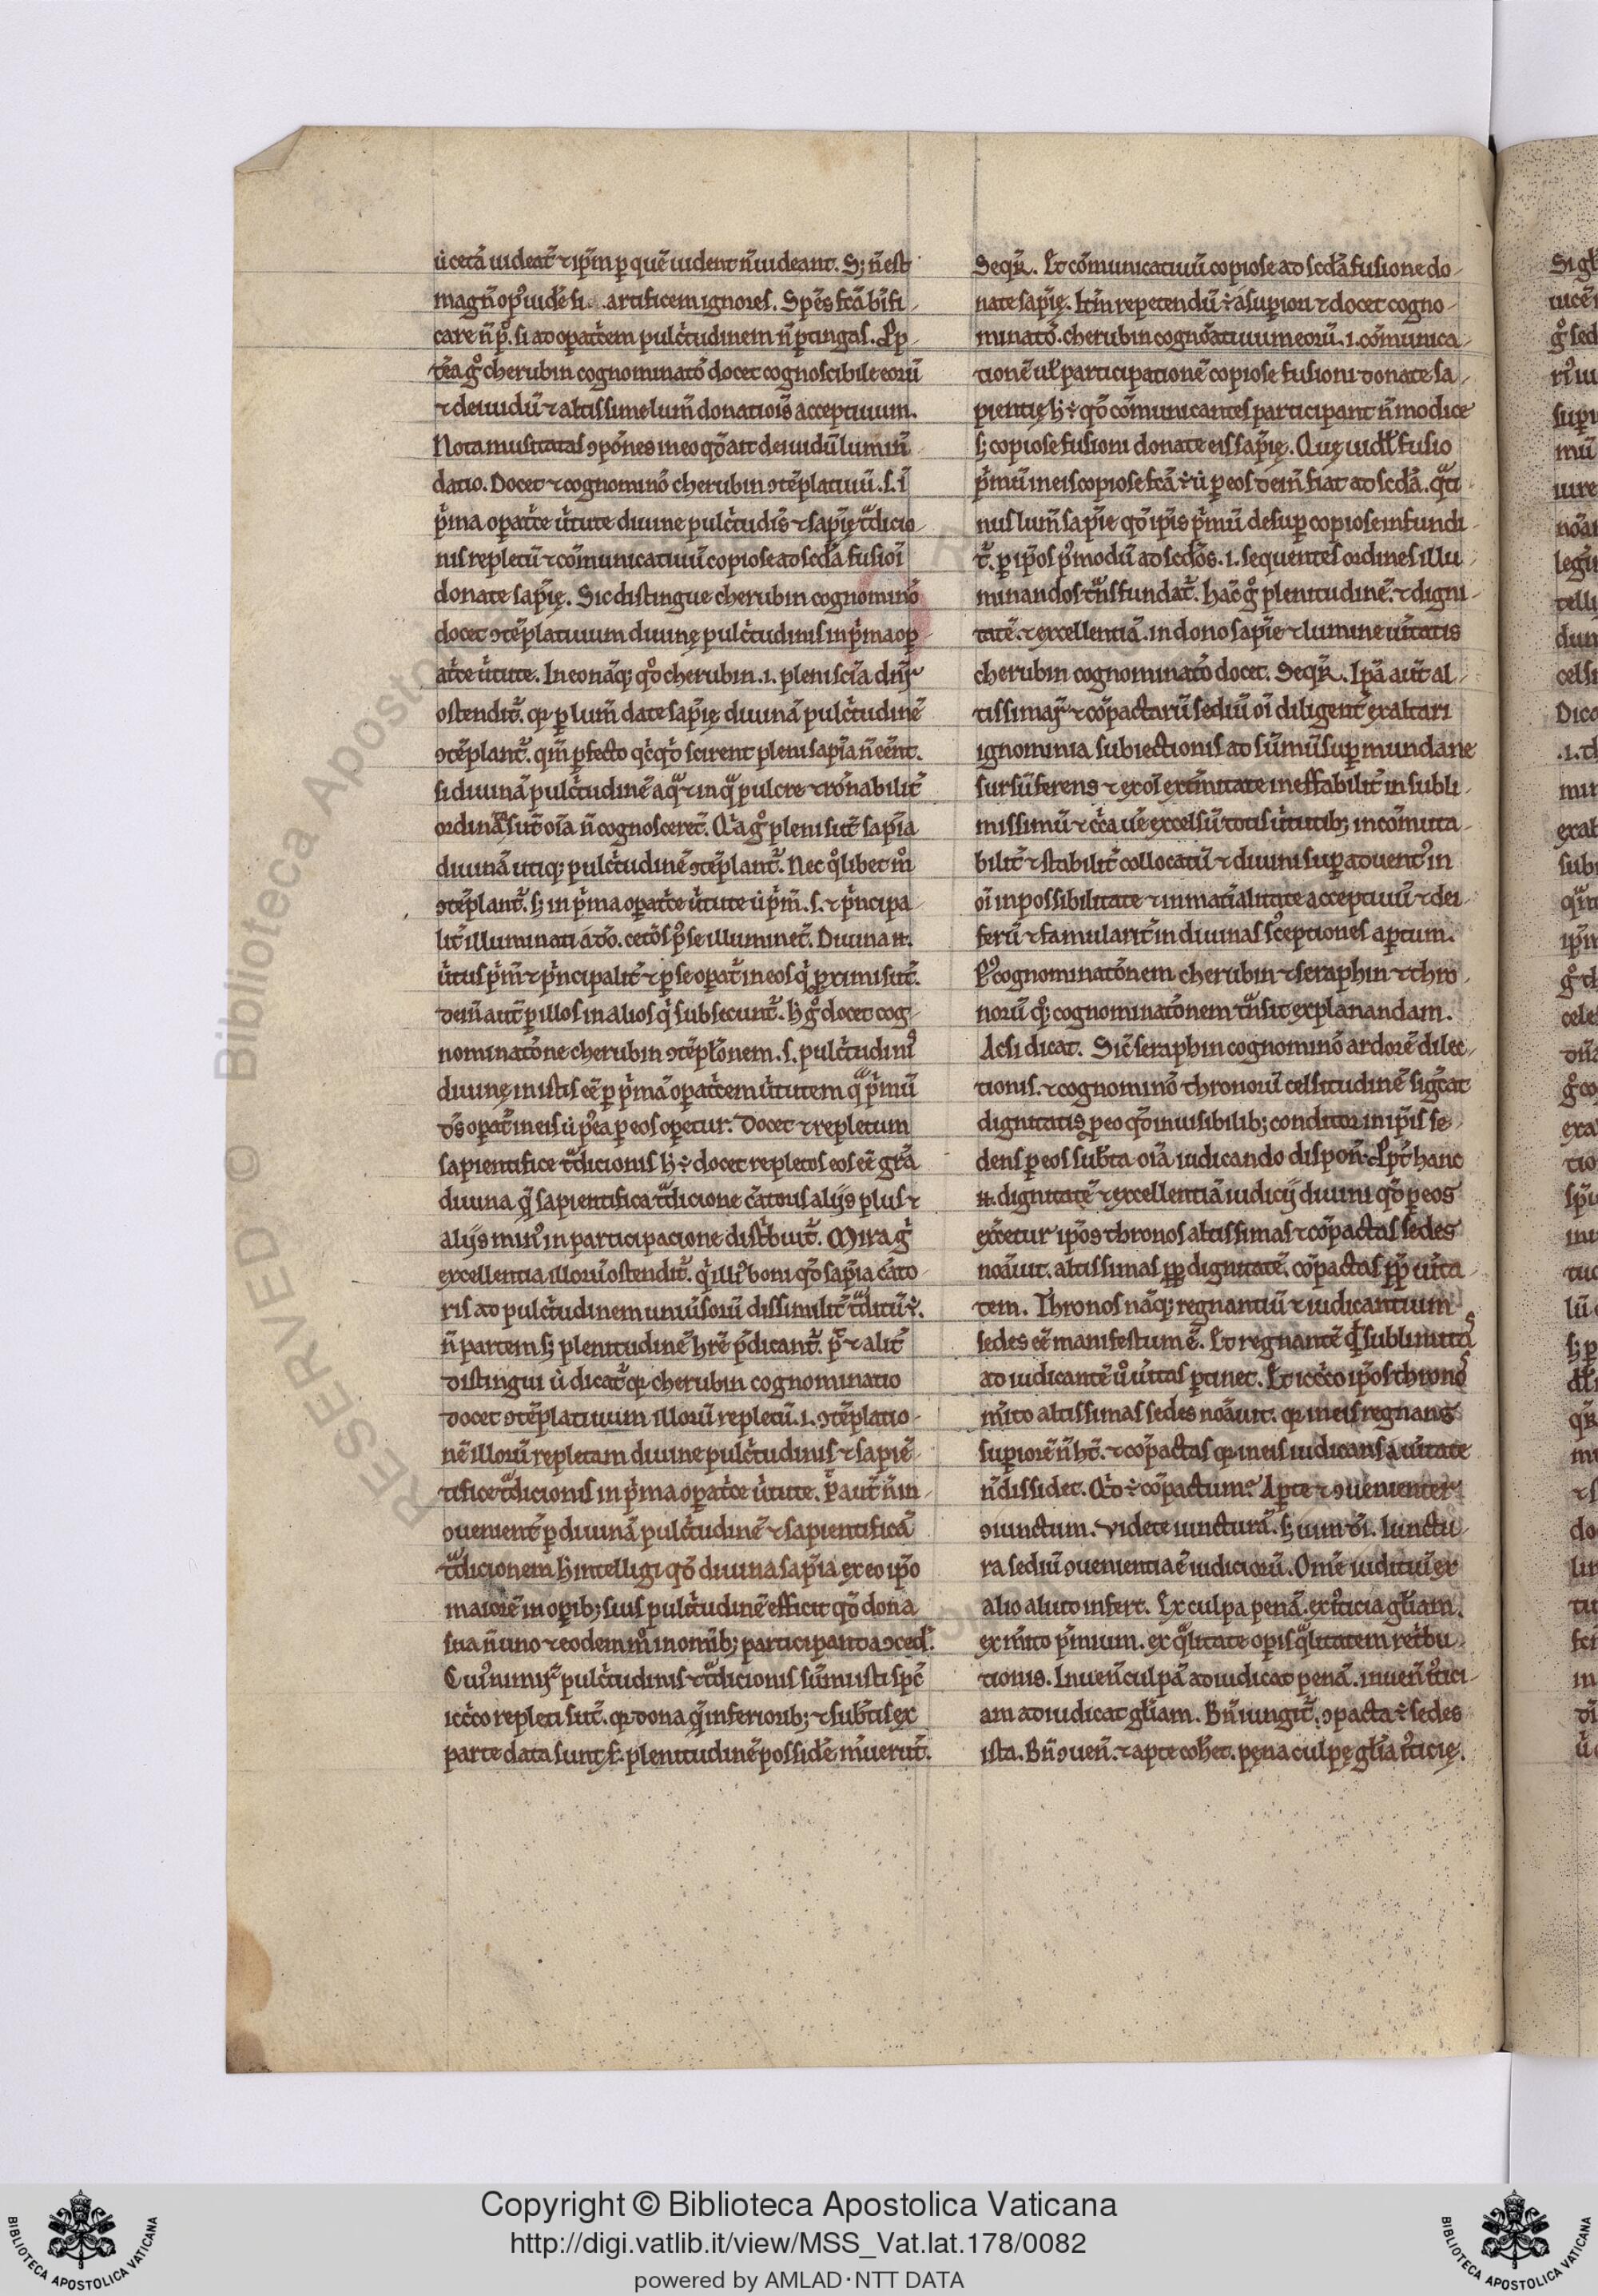 ut cetā uideat᷑ ⁊ ip̄m ꝑ quē uident n̄ uideant. Sꝫ n̄ est
magn̄ opꝰ uidē si artificem ignores. Sp̄es fcā bīfi-
care n̄ pͦ. si ad opat͛cem pulc͛tudinem n̄ ꝑtingas. Pp̄
t̄ea gͦ cherubin cognominatō docet cognoscibile eorū
⁊ deiuidū ⁊ altissime lum̄ donatiōis acceptiuum.
Nota inusitatas ꝯpōnes in eo qd̄ ait deiuidū luminˉ
datio. Docet ⁊ cognominō cherubin ꝯtēplatiuū .s. ī
p͛ma opat͛ce u͛tute diuine pulc͛tudīs ⁊ sap̄ię tᷓdicio-
nis repletū ⁊ cōmunicatiuū copiose ad scdā fusioī
donate sap̄ię. Sic distingue cherubin cognominō
docet ꝯtēplatiuum diuinę pulc͛tudinis in p͛ma oꝑ-
at͛ce u͛tute. In eo nāqꝫ qͦ cherubin .i. pleni sciā dn̄r
ostendit᷑. qꝛ ꝑ lum̄ date sap̄ię diuinā pulc͛tudinē
ꝯtēplant᷑. qm̄ ꝑfecto qc͛qd̄ scirent pleni sap̄ia n̄ eēnt.
si diuinā pulc͛tudinē a qᷓ ⁊ in qᷓ pulcre ⁊ rōnabilit͛
ordinata sūt oīa n̄ cognosceret᷑. Q͛a gͦ pleni sūt sap̄ia
diuinā utiqꝫ pulc͛tudinē ꝯtēplant᷑. Nec qͦlibet mͦ
ꝯtēplant᷑. sꝫ in p͛ma opat͛ce u͛tute ut p͛m̄. s. ⁊ p͛ncipa-
lit͛ illuminati a dō. cetōs pꝰ se illuminet. Diuina n.
u͛tus p͛m̄ ⁊ p͛ncipalit͛ ⁊ ꝑ se opat᷑ in eos qͥ ꝓximi sūt.
dein̄ aut̄ ꝑ illos in alios qͥ subsecunt᷑. h̄ gͦ docet cog-
nominatōne cherubin ꝯtēplōnem .s. pulc͛tudinis
diuinę in istis eē ꝑ p͛mā opat͛cem u͛tutem qᷓ p͛mū
ds̄ opat᷑ in eis ut pꝰea ꝑ eos oꝑetur. Docet ⁊ repletum
sapientifice tᷓdicionis h̄ ē docet repletos eos eē gr̄a
diuina qͣ sapientifica tᷓdicione c͛atoris alijs plus ⁊
alijs minꝰ in participacione dist͛buit᷑. Mira gͥ
excellentia illorū ostendit᷑. qͥ illiꝰ boni qd̄ sap̄ia c͛ato-
ris ad pulc͛tudinem uniu͛sorū dissimilit͛ tᷓditū ē.
n̄ partem sꝫ plenitudinē hr̄e p̄dicant᷑. pͦt̄ ⁊ alit͛
distingui ut dicat᷑ qꝛ cherubin cognominatio
docet ꝯtēplatiuum illorū repletū .i. ꝯtēplatio-
nē illorū repletam diuine pulc͛tudinis ⁊ sapiē-
tifice tᷓdicionis in p͛ma opat͛ce u͛tute. pͦt̄ aut̄ n̄ in-
ꝯuenient͛ ꝑ diuinā pulc͛tudinē ⁊ sapientificā
tᷓdicionem h̄ intelligi qd̄ diuina sap̄ia ex eo ip̄o
maiorē in opib ꝫ suis pulc͛tudinē efficit qd̄ dona
sua n̄ uno ⁊ eodem mͦ in om̄ibꝫ participanda ꝯced᷑.
Cuiꝰ nimiꝝ pulc͛tudinis ⁊ tᷓdicionis sūmi isti sp̄c
icc͛co repleti sūt. qꝛ dona qͣ inferioribꝫ ⁊ subīctis ex
parte data sunt plenitudinē possidē m͛uerūt.
Seqr̄. Et cōmunicatiuū copiose ad scdā fusione do-
nate sap̄ię. Itm̄ repetendū ē a suꝑiori ⁊ docet cogno-
minatō. cherubin cognōatiuum eorū .i. cōmunica-
tionē ul̄ participationē copiose fusioni donate sa-
pientię h̄ ē qd̄ cōmunicantes participant n̄ modice
sꝫ copiose fusioni donate eis sap̄ię. Quę uidl̄ fusio
p͛mū in eis copiose fcā ē ut ꝑ eos dein̄ fiat ad scdā. qᷓti-
nus lum̄ sap̄ie qd̄ ip̄is p͛mū desuꝑ copiose infundi-
t᷑. ꝑ ip̄os pꝰmodū ad scdōs .i. sequentes ordines illu-
minandos tᷓnsfundat᷑. hāc gͦ plenitudinē. ⁊ digni-
tatē. ⁊ excellentiā. in dono sap̄ie ⁊ lumine u͛itatis
cherubin cognominatō docet. Seqr̄. Ip̄a aut̄ al-
tissimaꝝ ⁊ cōpactarū sediū oī diligent͛ exaltari
ignominia subiectionis ad sūmū suꝑmundane
sursū ferens ⁊ ex oī ext͛mitate ineffabilit͛ in subli-
missimū ⁊ c͛ca uē excelsū totis u͛tutibꝫ incōmuta-
bilit͛ ⁊ stabilit͛ collocatū ⁊ diuini suꝑaduentꝰ in
oī inpossibilitate ⁊ inmat͛ialitate acceptiuū ⁊ dei-
ferū ⁊ famularit͛ in diuinas sꝰceptiones aꝑtum.
Pꝰ cognominatōnem cherubin ⁊ seraphin ⁊ thro-
norū qͦqꝫ cognominatōnem tᷓnsit explanandam.
Acsi dicat. Sic̄ seraphin cognominō ardorē dilec-
tionis. ⁊ cognominō thronorū celsitudinē sigc̄at
dignitatis ꝑ eo qd̄ inuisibilibꝫ conditor in ip̄is se-
dens ꝑ eos subīcta oīa iudicando dispon̄. Ppt̄ hanc
n. dignitatē ⁊ excellentiā iudicij diuini qd̄ ꝑ eos
ex͛cetur ip̄os thronos altissimas ⁊ cōpactas sedes
noāuit. altissimas ꝓpt̄ dignitatē. cōpactas ꝓpt̄ u͛ita-
tem. Thronos nāqꝫ regnantiū ⁊ iudicantium
sedes eē manifestum ē. Et regnantē qͥ sublimitas
ad iudicantē uͦ u͛itas ꝑtinet. Et icc͛co ip̄os thronos
m͛ito altissimas sedes noāuit. qꝛ in eis regnans
suꝑiorē n̄ ht̄. ⁊ cōpactas qꝛ in eis iudicans a u͛itate
n̄ dissidet. Qd̄ ē cōpactum? Aꝑte ⁊ ꝯuenienter
ꝯiunctum. Videte iuncturā. sꝫ uim dī. Iunctu-
ra sediū ꝯuenientia ē iudiciorū. Om̄e iuditiū ex
alio aliud infert. Ex culpa penā. ex iꝰticia gl̄iam.
ex m͛ito p͛mium. ex qͣlitate opis qͣlitatem ret͛bu-
tionis. Inuen̄ culpā adiudicat penā. inuen̄ iꝰtici-
am adiudicat gl̄iam. Bn̄ iungit᷑. ꝯpacta ē sedes
ista. Bn̄ ꝯuen̄. ⁊ apte coh͛et. pęna culpę gl̄ia iꝰticię.
Copyright © Biblioteca Apostolica Vaticana
http://digi.vatlib.it/view/MSS_Vat.lat.178/0082
powered by AMLAD·NTT DATA